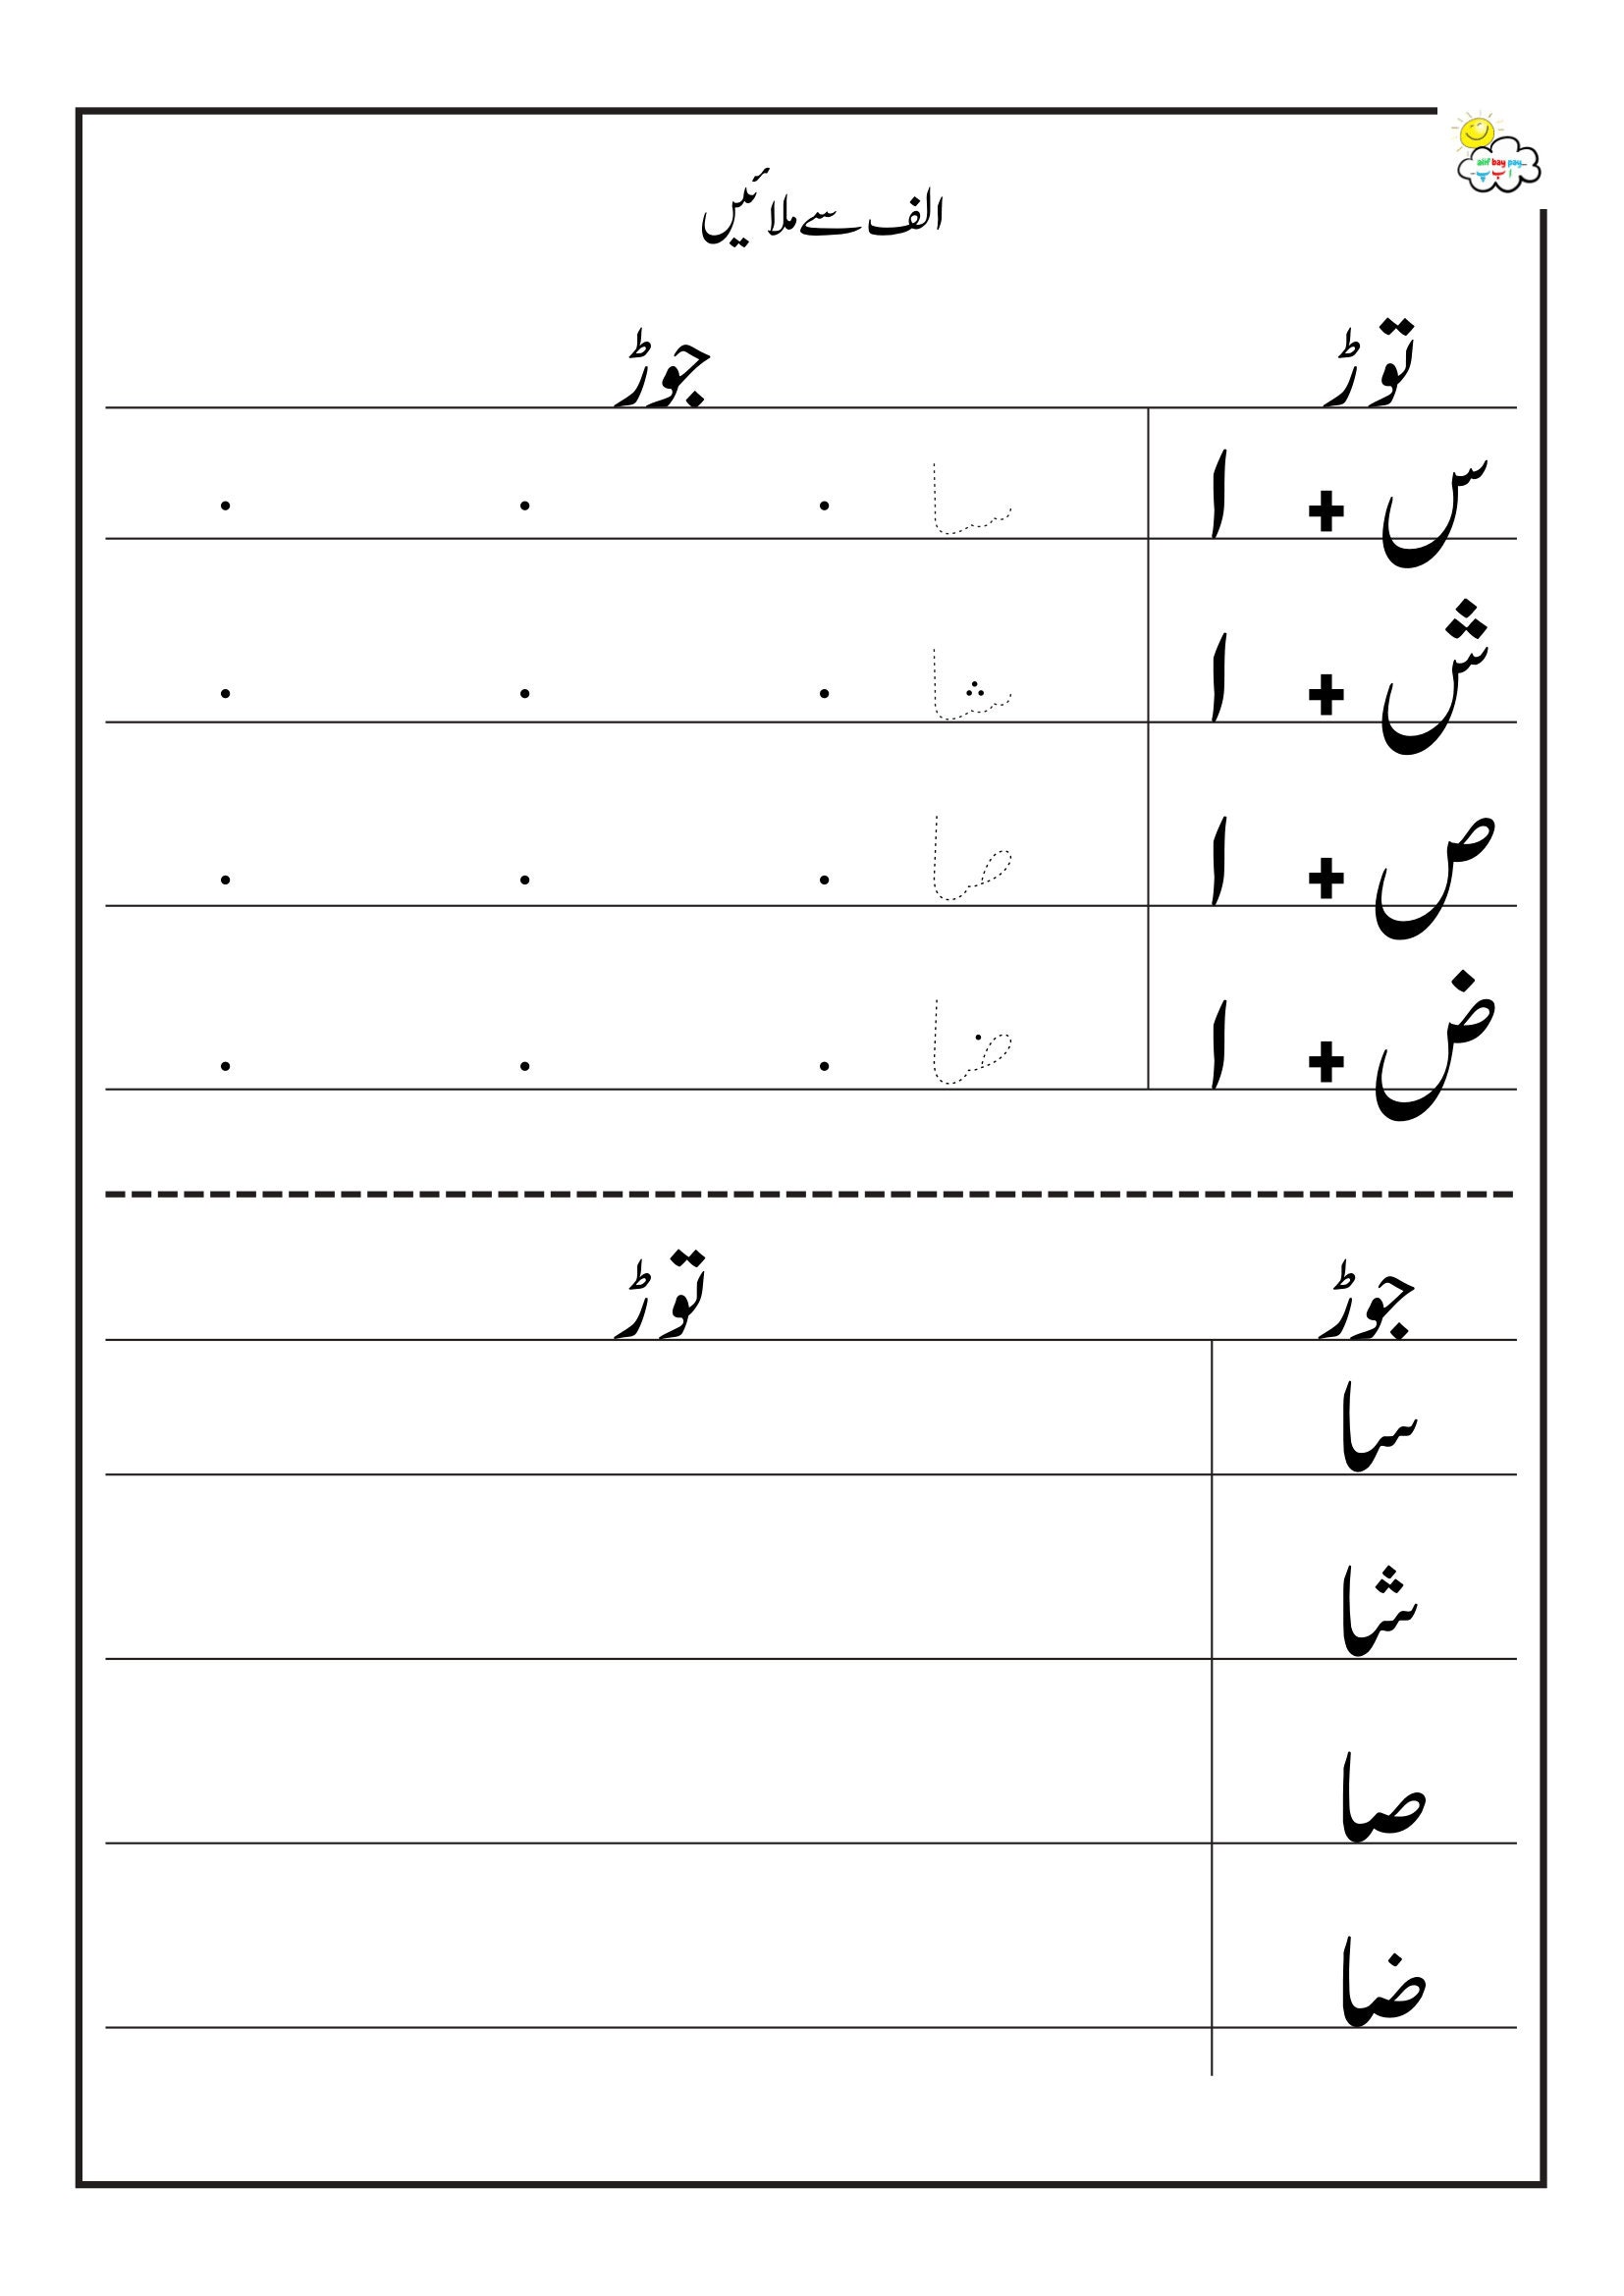 alif bay pay
ا ب پ
الف سے ملائیں
توڑ جوڑ
س + ا سا
ش + ا شا
ص + ا صا
ض + ا ضا
جوڑ توڑ
سا
شا
صا
ضا